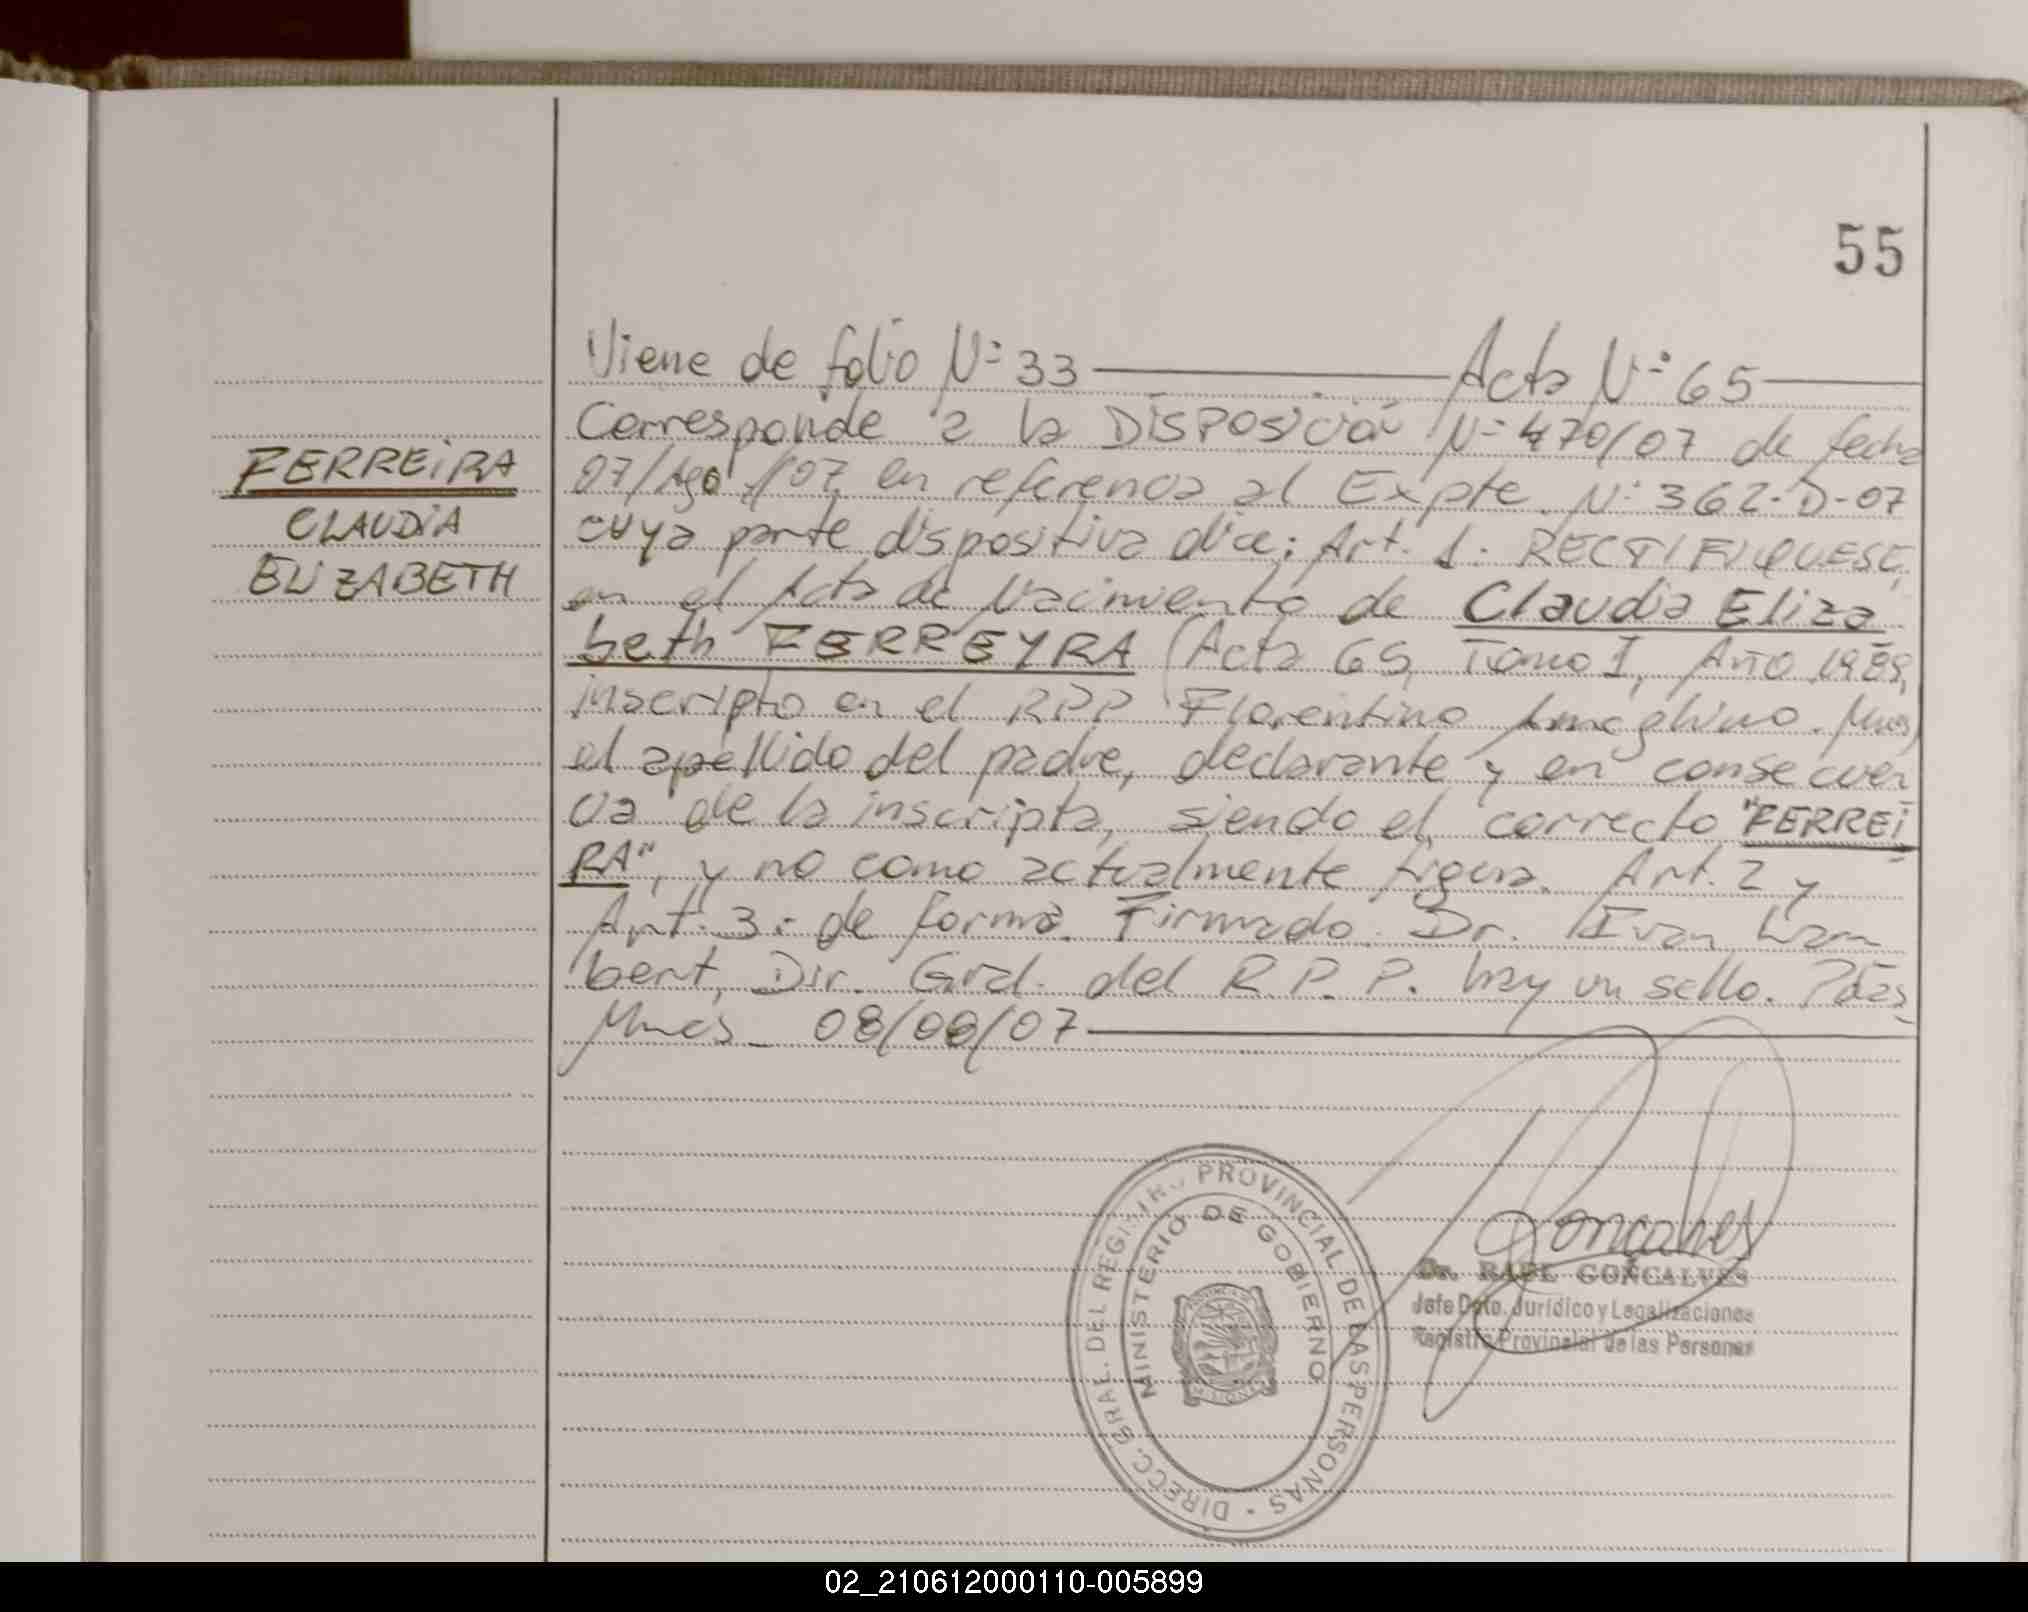 55
Viene de folio N° 33 Acta N° 65
Corresponde a la DISPOSICIÓN N° 470/07 de fecha
07/Ago./07, en referencia al Expte. N° 362-D-07
FERREIRA
CLAUDIA
ELIZABETH
cuya parte dispositiva dice: Art. 1: RECTIFIQUESE,
en el Acta de Nacimiento de Claudia Eliza
beth FERREYRA (Acta 65, Tomo I, Año 1989,
inscripto en el RPP Florentino Ameghino. Mnes)
el apellido del padre, declarante y en consecuen
cia de la inscripta, siendo el correcto "FERREI
RA", y no como actualmente figura. Art. 2 y
Art. 3: de forma. Firmado. Dr. Ivan Lam
bert, Dir. Gral. del R.P.P. hay un sello. Pdas
Mnes_ 08/08/07
DIRECC. GRAL. DEL REGISTRO PROVINCIAL DE LAS PERSONAS
MINISTERIO DE GOBIERNO
MISIONES
Goncalves
Dr. RAUL GONÇALVES
Jefe Dpto. Jurídico y Legalizaciones
Registro Provincial de las Personas
02_210612000110-005899